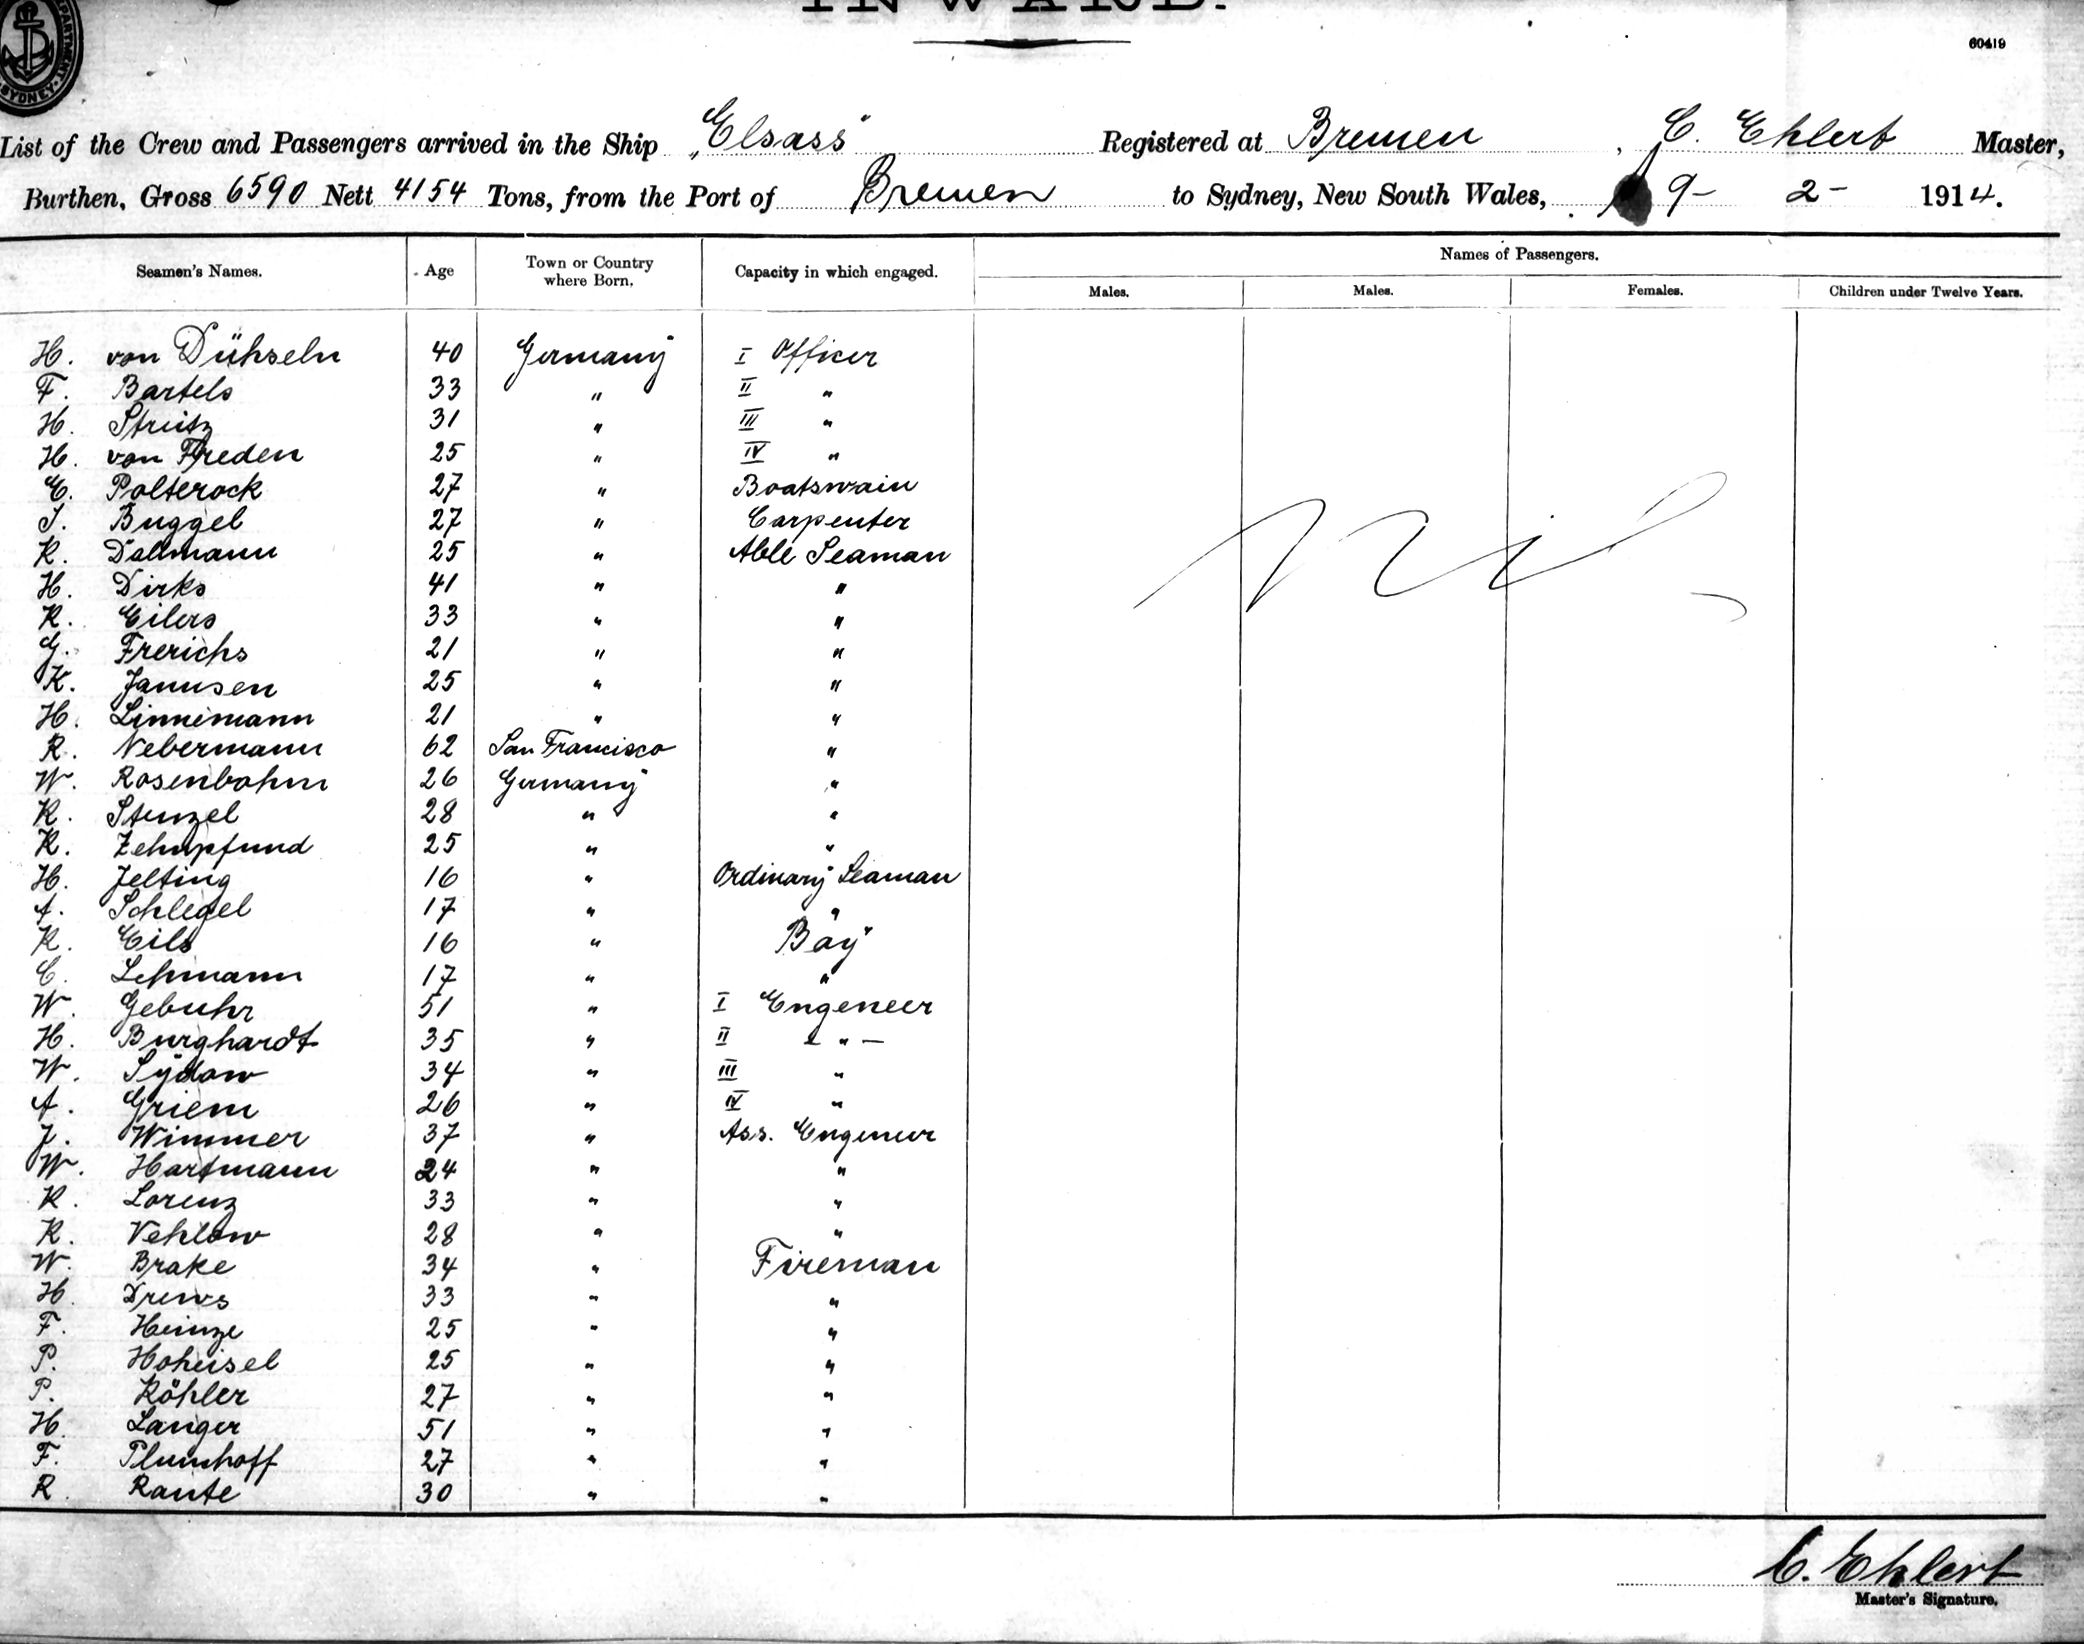 INWARD.
60419
DEPARTMENT SYDNEY
List of the Crew and Passengers arrived in the Ship „Elsass" Registered at Bremen, C. Ehlert Master,
Burthen, Gross 6590 Nett 4154 Tons, from the Port of Bremen to Sydney, New South Wales, 9- 2- 1914.
Seamen's Names. Age Town or Country where Born. Capacity in which engaged. Names of Passengers.
Males. Males. Females. Children under Twelve Years.
H. von Dühseln 40 Germany I Officer
F. Bartels 33 " II "
H. Streitz 31 " III "
H. von Freden 25 " IV "
C. Polterock 27 " Boatswain
J. Buggel 27 " Carpenter
K. Dallmann 25 " Able Seaman
H. Dirks 41 " "
R. Eilers 33 " "
G. Frerichs 21 " "
K. Janusen 25 " "
H. Linnemann 21 " "
R. Nebermann 62 San Francisco "
W. Rosenbohm 26 Germany "
K. Stenzel 28 " "
K. Zehnpfund 25 " "
H. Jelting 16 " Ordinary Seaman
A. Schlegel 17 " "
K. Eils 16 " Boy
C. Lehmann 17 " "
W. Gebuhr 51 " I Engeneer
H. Burghardt 35 " II - " -
W. Sydow 34 " III "
A. Griem 26 " IV "
J. Wimmer 37 " Ass. Engeneer
W. Hartmann 24 " "
K. Lorenz 33 " "
K. Vehlow 28 " "
W. Brake 34 " Fireman
H. Drews 33 " "
F. Heinze 25 " "
P. Hoheisel 25 " "
P. Köhler 27 " "
H. Langer 51 " "
F. Plumhoff 27 " "
R. Rante 30 " "
Nil
C. Ehlert
Master's Signature.